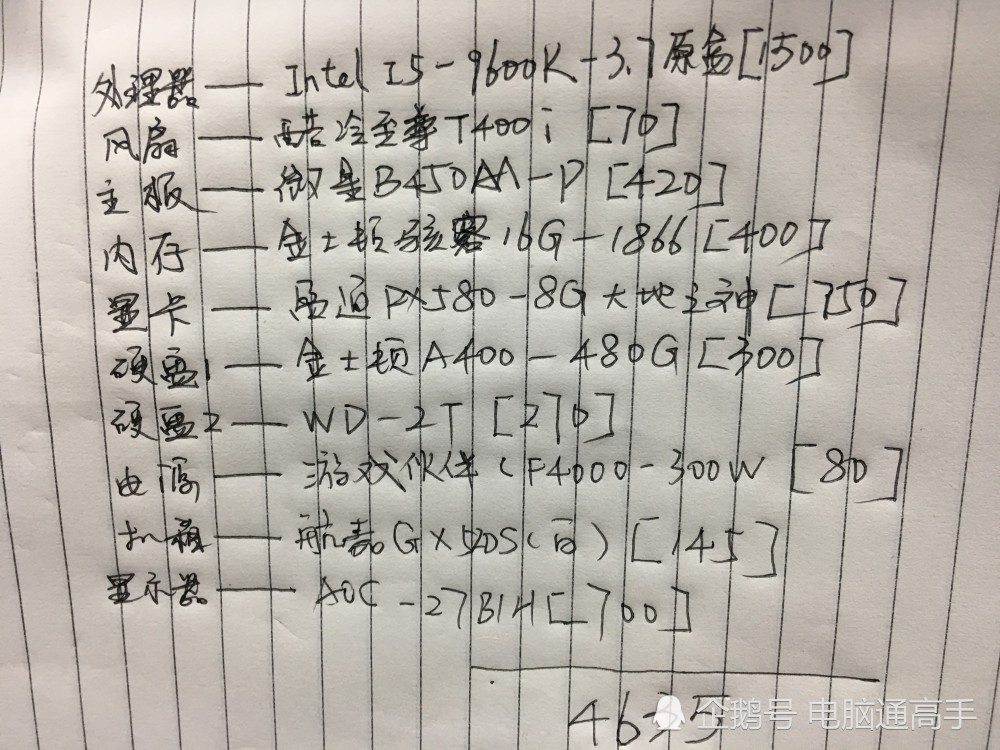 处理器 — Intel I5-9600K-3.7原盒[1500]
风扇 — 酷冷至尊T400i [70]
主板 — 微星B450AA-P [420]
内存 — 金士顿骇客16G-1866 [400]
显卡 — 盈通PX580-8G大地之神[750]
硬盘1 — 金士顿A400-480G [300]
硬盘2 — WD-2T [270]
电源 — 游戏伙伴CF4000-300W [80]
机箱 — 航嘉GX520S(白) [145]
显示器 — AOC-27B1H[700]
4635
企鹅号 电脑通高手